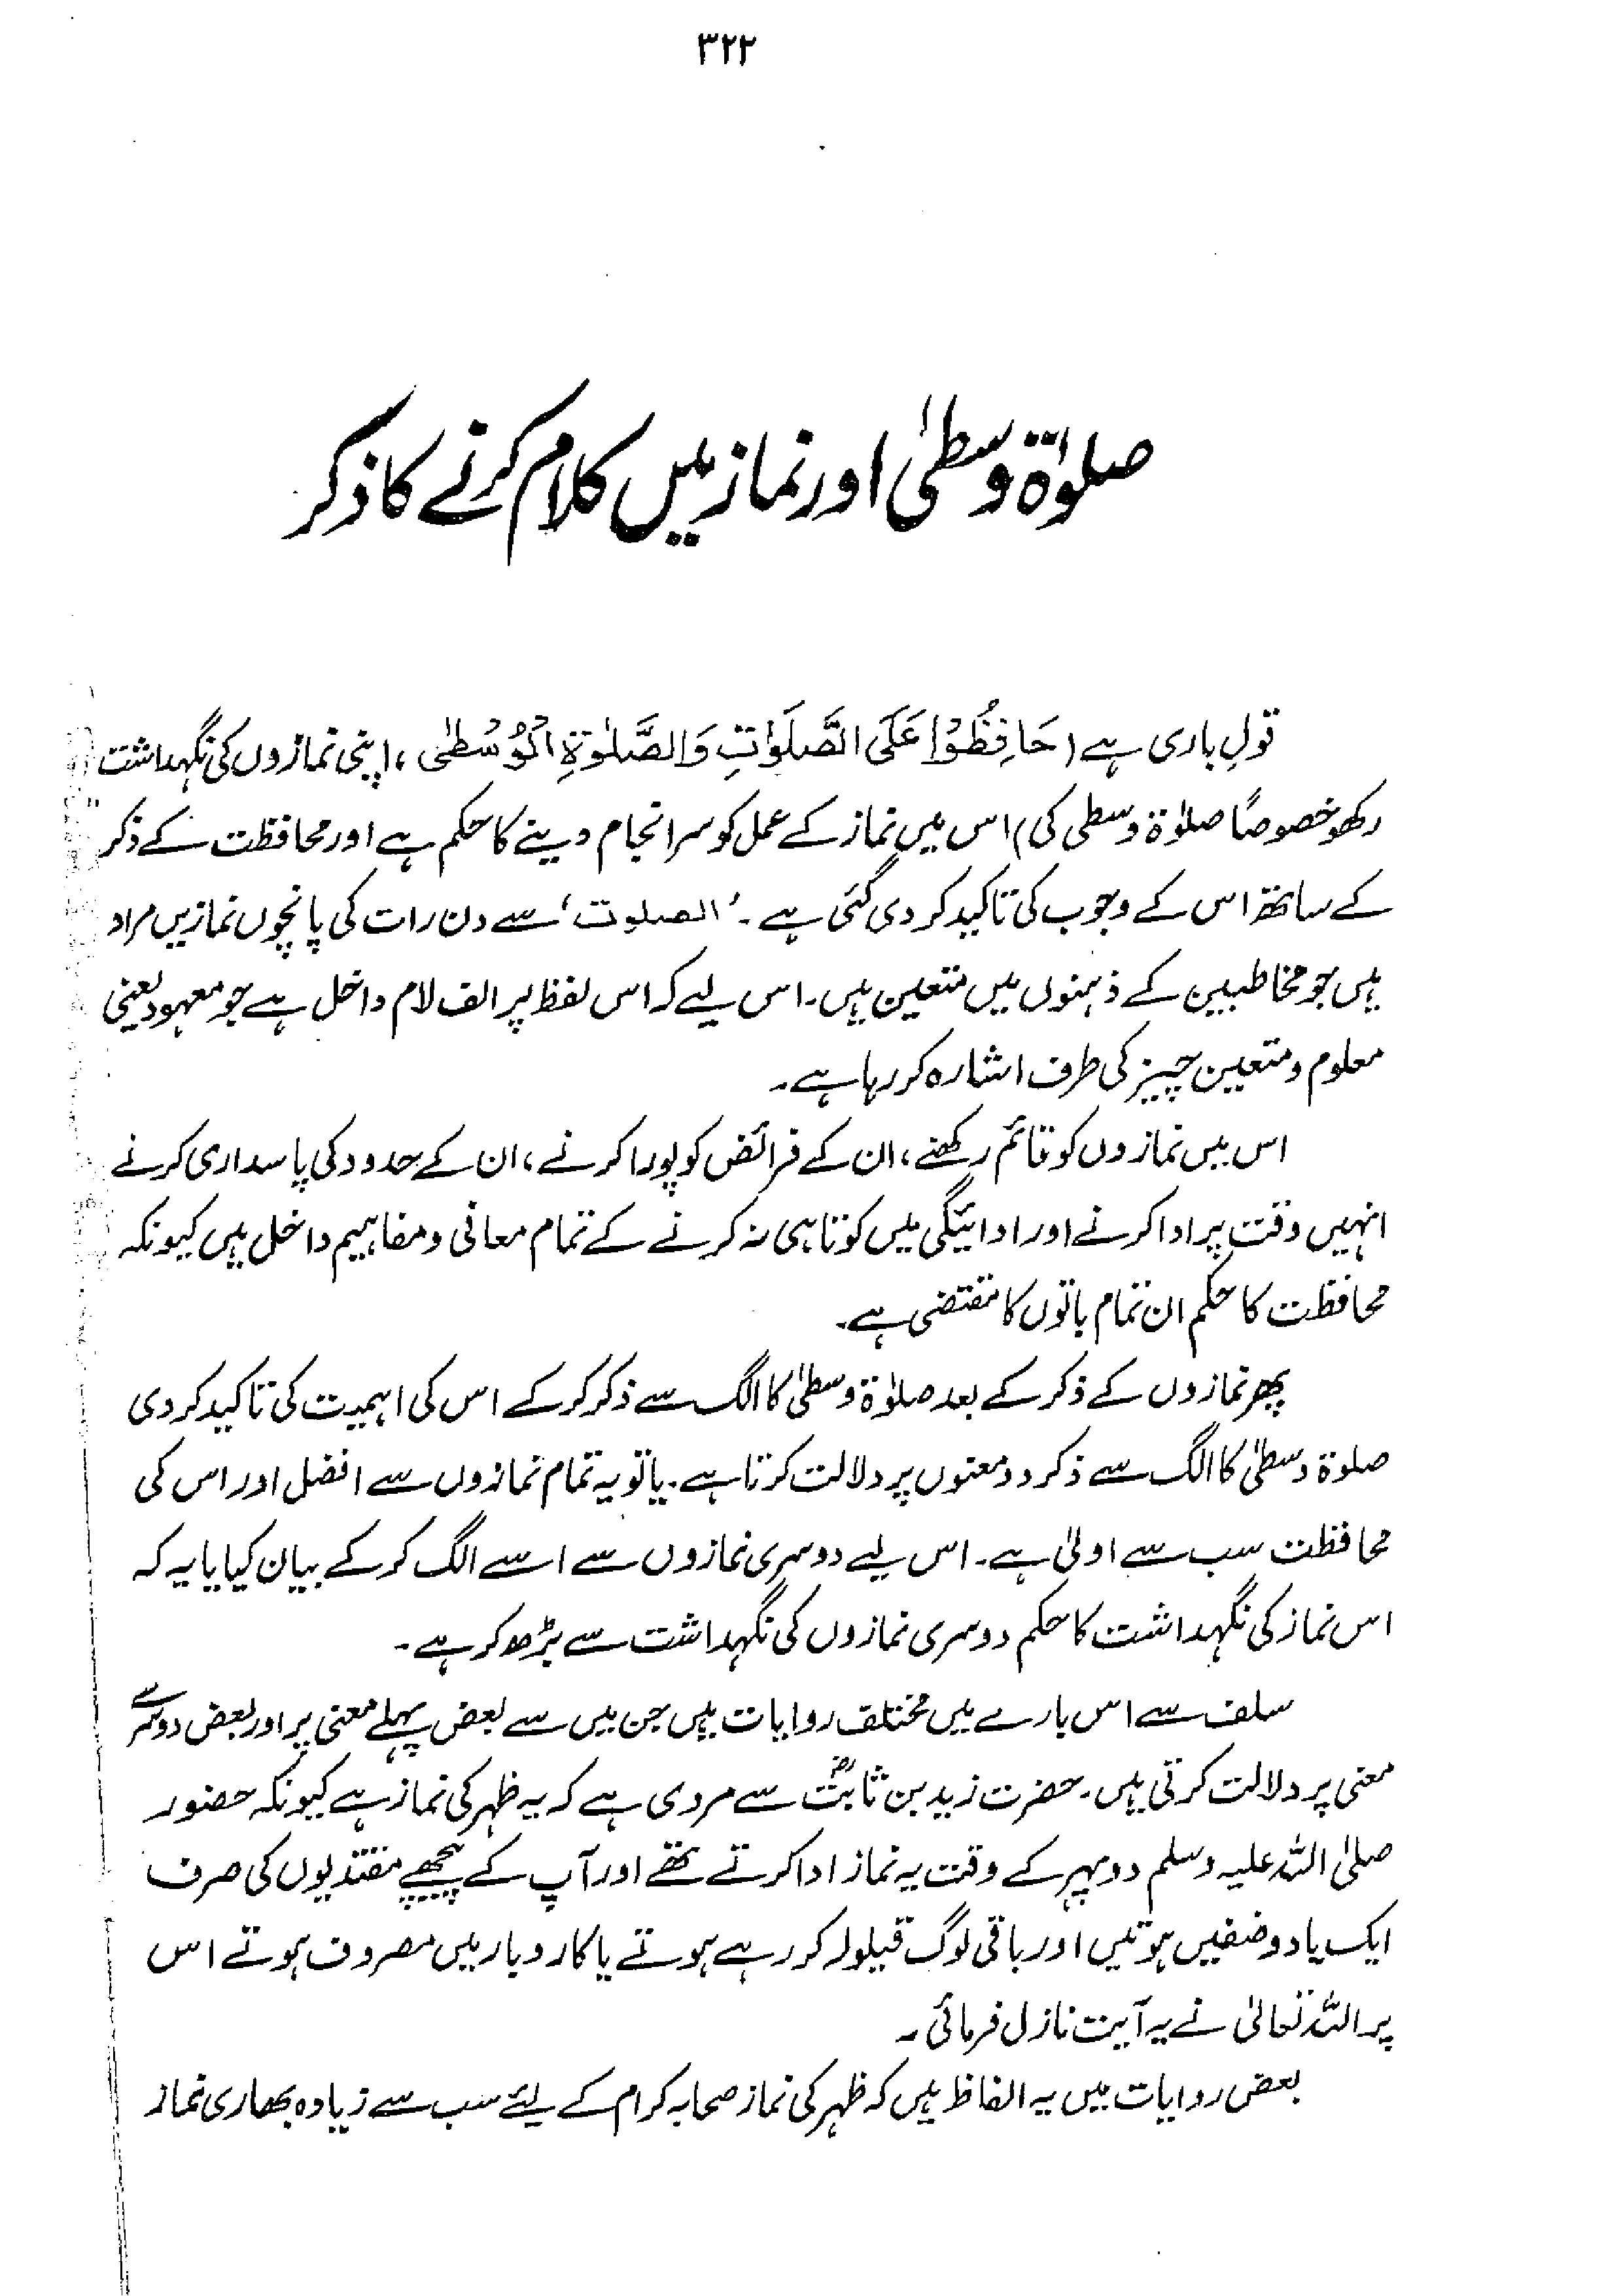 ۳۲۲
صلوٰۃ وسطیٰ اور نماز میں کلام کرنے کا ذکر
قولِ باری ہے (حَافِظُوْا عَلَی الصَّلَوٰتِ وَالصَّلٰوۃِ الْوُسْطٰی ، اپنی نمازوں کی نگہداشت
رکھو خصوصاً صلوٰۃ وسطی کی) اس میں نماز کے عمل کو سرانجام دینے کا حکم ہے اور محافظت کے ذکر
کے ساتھ اس کے وجوب کی تاکید کر دی گئی ہے ۔ 'الصلوت' سے دن رات کی پانچوں نمازیں مراد
ہیں جو مخاطبین کے ذہنوں میں متعین ہیں۔ اس لیے کہ اس لفظ پر الف لام داخل ہے جو معہود یعنی
معلوم و متعین چیز کی طرف اشارہ کر رہا ہے۔
اس میں نمازوں کو قائم رکھنے، ان کے فرائض کو پورا کرنے، ان کے حدود کی پاسداری کرنے
انہیں وقت پر ادا کرنے اور ادائیگی میں کوتاہی نہ کرنے کے تمام معانی و مفاہیم داخل ہیں کیونکہ
محافظت کا حکم ان تمام باتوں کا مقتضی ہے۔
پھر نمازوں کے ذکر کے بعد صلوٰۃ وسطیٰ کا الگ سے ذکر کر کے اس کی اہمیت کی تاکید کر دی
صلوۃ وسطیٰ کا الگ سے ذکر دو معنوں پر دلالت کرتا ہے۔ یا تو یہ تمام نمازوں سے افضل اور اس کی
محافظت سب سے اولیٰ ہے۔ اس لیے دوسری نمازوں سے اسے الگ کر کے بیان کیا یا یہ کہ
اس نماز کی نگہداشت کا حکم دوسری نمازوں کی نگہداشت سے بڑھ کر ہے۔
سلف سے اس بارے میں مختلف روایات ہیں جن میں سے بعض پہلے معنی پر اور بعض دوسرے
معنی پر دلالت کرتی ہیں۔ حضرت زید بن ثابتؓ سے مروی ہے کہ یہ ظہر کی نماز ہے کیونکہ حضور
صلی اللہ علیہ وسلم دوپہر کے وقت یہ نماز ادا کرتے تھے اور آپ کے پیچھے مقتدیوں کی صرف
ایک یا دو صفیں ہوتیں اور باقی لوگ قیلولہ کر رہے ہوتے یا کاروبار میں مصروف ہوتے اس
پر اللہ تعالیٰ نے یہ آیت نازل فرمائی ۔
بعض روایات میں یہ الفاظ ہیں کہ ظہر کی نماز صحابہ کرام کے لیئے سب سے زیادہ بھاری نماز